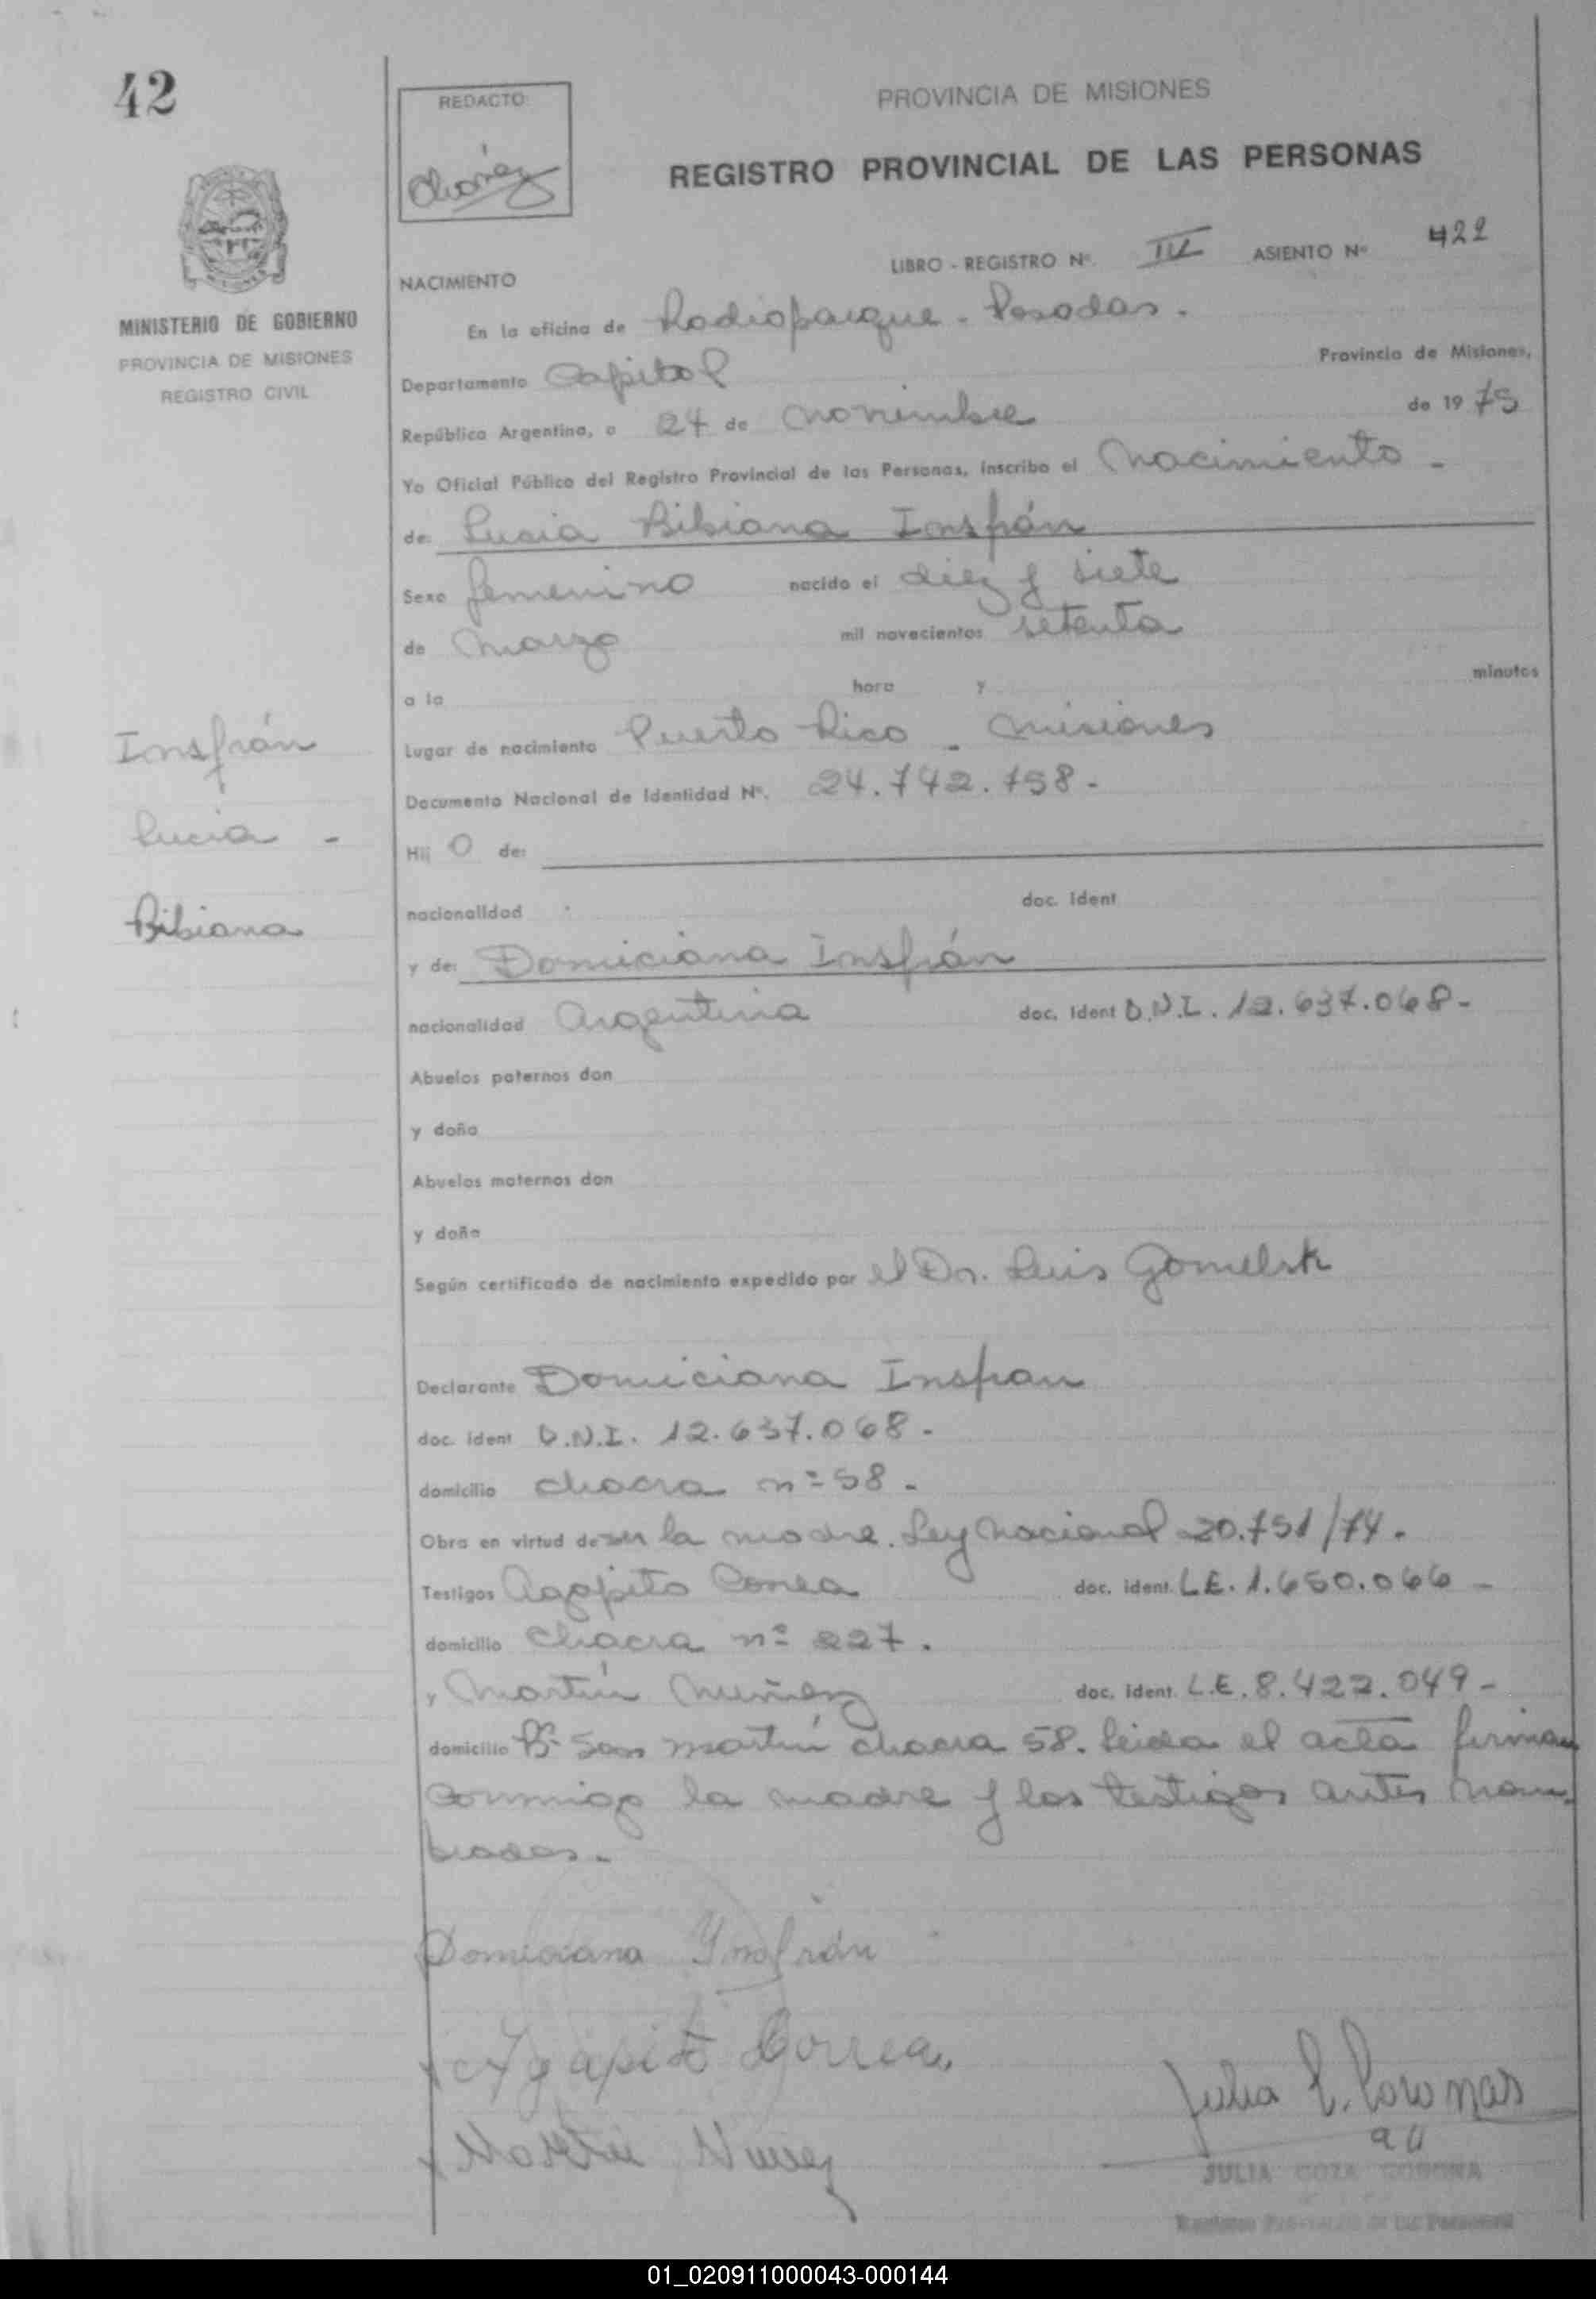 42
REDACTO:
PROVINCIA DE MISIONES
REGISTRO PROVINCIAL DE LAS PERSONAS
LIBRO - REGISTRO Nº. ASIENTO Nº 422
NACIMIENTO
MINISTERIO DE GOBIERNO
PROVINCIA DE MISIONES
REGISTRO CIVIL
En la oficina de Radioparque - Posadas.
Departamento Capital Provincia de Misiones,
República Argentina, a 24 de noviembre de 1975
Yo Oficial Público del Registro Provincial de las Personas, inscribo el Nacimiento -
de: Lucia Bibiana Insfrán
Sexo femenino nacido el diez y siete
de Marzo mil novecientos setenta
a la hora y minutos
Lugar de nacimiento Puerto Rico - Misiones
Documento Nacional de Identidad Nº. 24.742.758.-
Insfrán
Lucia -
Bibiana
Hij o de:
nacionalidad doc. Ident
y de: Domiciana Insfrán
nacionalidad Argentina doc. Ident D.N.I. 12.637.068-
Abuelos paternos don
y doña
Abuelos maternos don
y doña
Según certificado de nacimiento expedido por el Dr. Luis
Declarante Domiciana Insfran
doc. ident D.N.I. 12.637.068.-
domicilio chacra nº 58.-
Obra en virtud de ser la madre. Ley Nacional 20.751/74.
Testigos Agapito Correa doc. ident. L.E. 1.650.066 -
domicilio Chacra nº 227.
y Martín Nuñez doc. ident. L.E. 8.422.049 -
domicilio Bº San Martín chacra 58. Leida el acta firman
conmigo la madre y los testigos antes nom-
brados.-
Domiciana Insfrán
Agapito Correa
Martin Nuñez
Julia
JULIA COZA CORONA
01_020911000043-000144